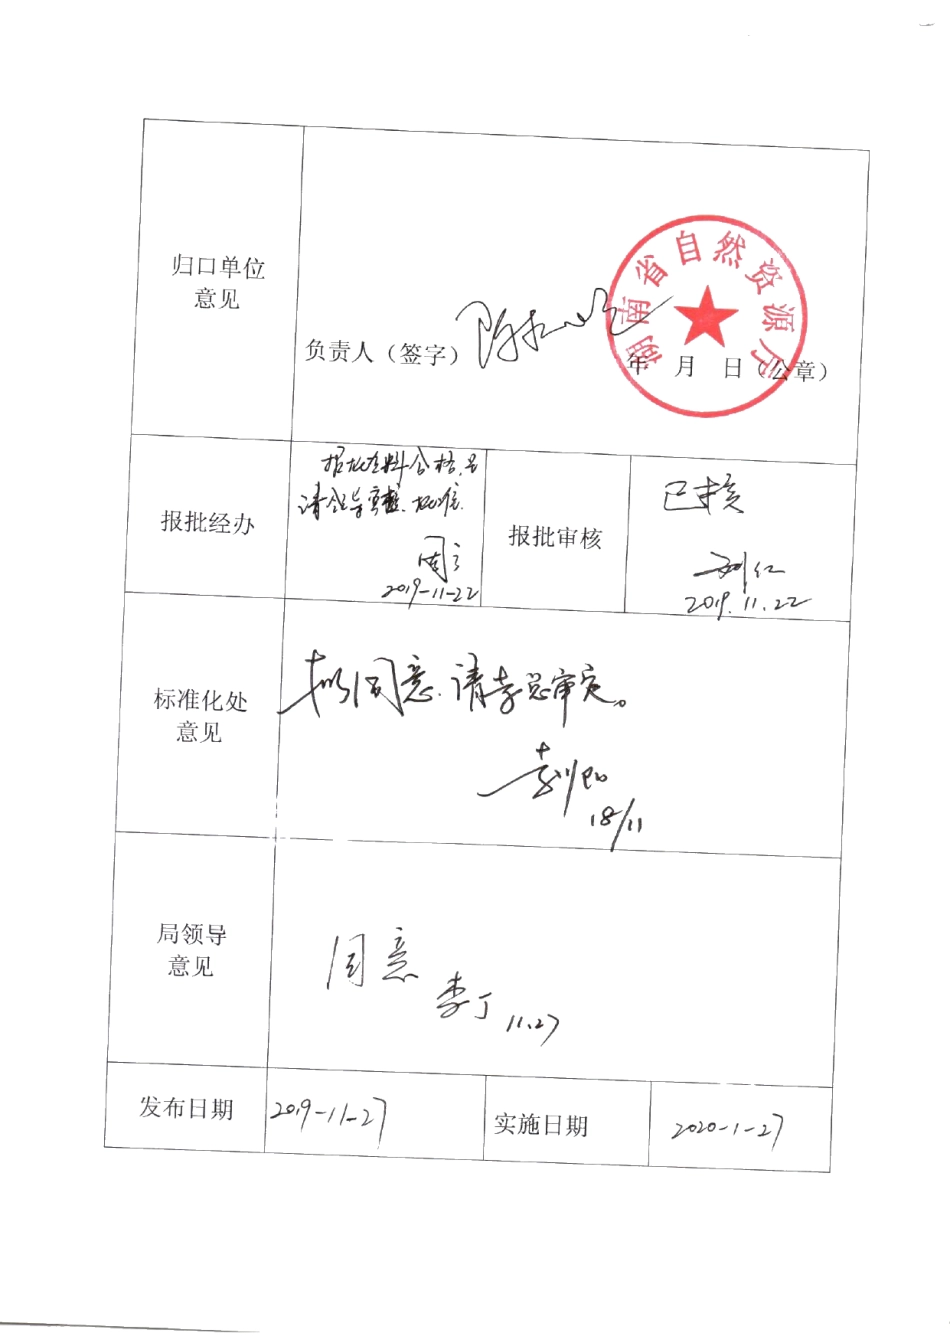 归口单位
意见
湖南省自然资源厅
负责人（签字）
年 月 日（公章）
报批经办
报批材料合格,呈
请领导审核、批准.
2019-11-22
报批审核
已核
2019.11.22
标准化处
意见
拟同意.请李总审定。
18/11
局领导
意见
同意
李丁 11.27
发布日期
2019-11-27
实施日期
2020-1-27